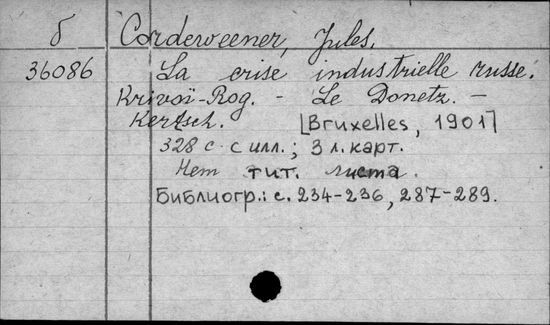 б Cordeweener, Jules.
36086 La crise industrielle russe.
Krivoï-Rog. - Le Donetz. -
Kertsch. [Bruxelles, 1901]
328 с. с илл.; 3 л. карт.
Нет тит. листа.
Библиогр.: с. 234-236, 287-289.